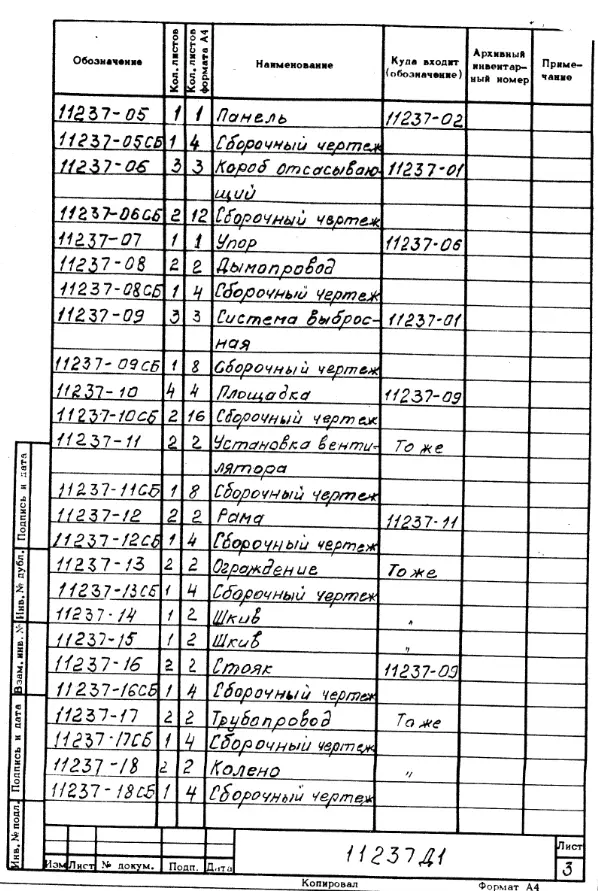 Обозначение Кол. листов Кол. листов формата А4 Наименование Куда входит (обозначение) Архивный инвентар-ный номер Приме-чание
11237-05 1 1 Панель 11237-02
11237-05СБ 1 4 Сборочный чертеж
11237-06 3 3 Короб отсасываю- 11237-01
щий
11237-06СБ 2 12 Сборочный чертеж
11237-07 1 1 Упор 11237-06
11237-08 2 2 Дымопровод
11237-08СБ 1 4 Сборочный чертеж
11237-09 3 3 Система выброс- 11237-01
ная
11237-09СБ 1 8 Сборочный чертеж
11237-10 4 4 Площадка 11237-09
11237-10СБ 2 16 Сборочный чертеж
11237-11 2 2 Установка венти- То же
лятора
11237-11СБ 1 8 Сборочный чертеж
11237-12 2 2 Рама 11237-11
11237-12СБ 1 4 Сборочный чертеж
11237-13 2 2 Ограждение То же
11237-13СБ 1 4 Сборочный чертеж
11237-14 1 2 Шкив "
11237-15 1 2 Шкив "
11237-16 2 2 Стояк 11237-09
11237-16СБ 1 4 Сборочный чертеж
11237-17 2 2 Трубопровод То же
11237-17СБ 1 4 Сборочный чертеж
11237-18 2 2 Колено "
11237-18СБ 1 4 Сборочный чертеж
Инв. № подл. Подпись и дата Взам. инв. № Инв. № дубл. Подпись и дата
Изм Лист № докум. Подп. Дата
11237Д1
Лист
3
Копировал Формат А4